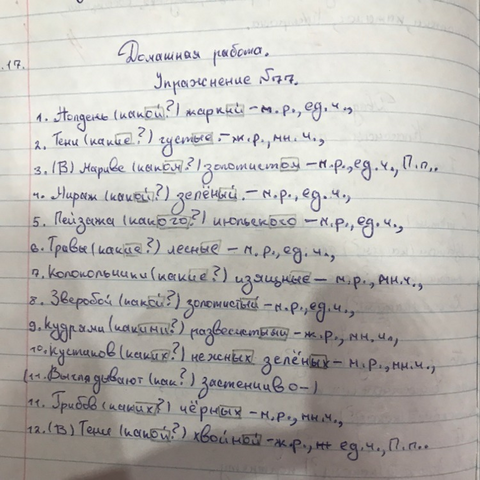 .17.
Домашная работа.
Упражнение №77.
1. Полдень (какой?) жаркий – м.р., ед.ч.,
2. Тени (какие?) густые. – ж.р., мн.ч.,
3. (В) мариве (каком?) золотистом – м.р., ед.ч., П.п..
4. Мираж (какой?) зелёный. – м.р., ед.ч.,
5. Пейзажа (какого?) июльского – м.р., ед.ч.,
6. Травы (какие?) лесные – м.р., ед.ч.,
7. Колокольчики (какие?) изящные – м.р., мн.ч.,
8. Зверобой (какой?) золотистый – м.р., ед.ч.,
9. Кудрями (какими?) развесистыми – ж.р., мн.ч.,
10. Кустиков (каких?) нежных зелёных – м.р., мн.ч.,
(11. Выглядывают (как?) застенчиво –)
11. Грибов (каких?) чёрных – м.р., мн.ч.,
12. (В) Тени (какой?) хвойной – ж.р., ед.ч., П.п..